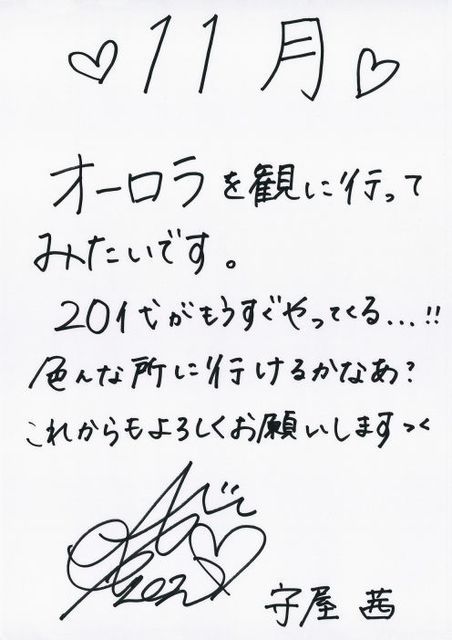 ♡ 11月 ♡
オーロラを観に行って
みたいです。
20代がもうすぐやってくる...!!
色んな所に行けるかなあ?
これからもよろしくお願いします
守屋 茜